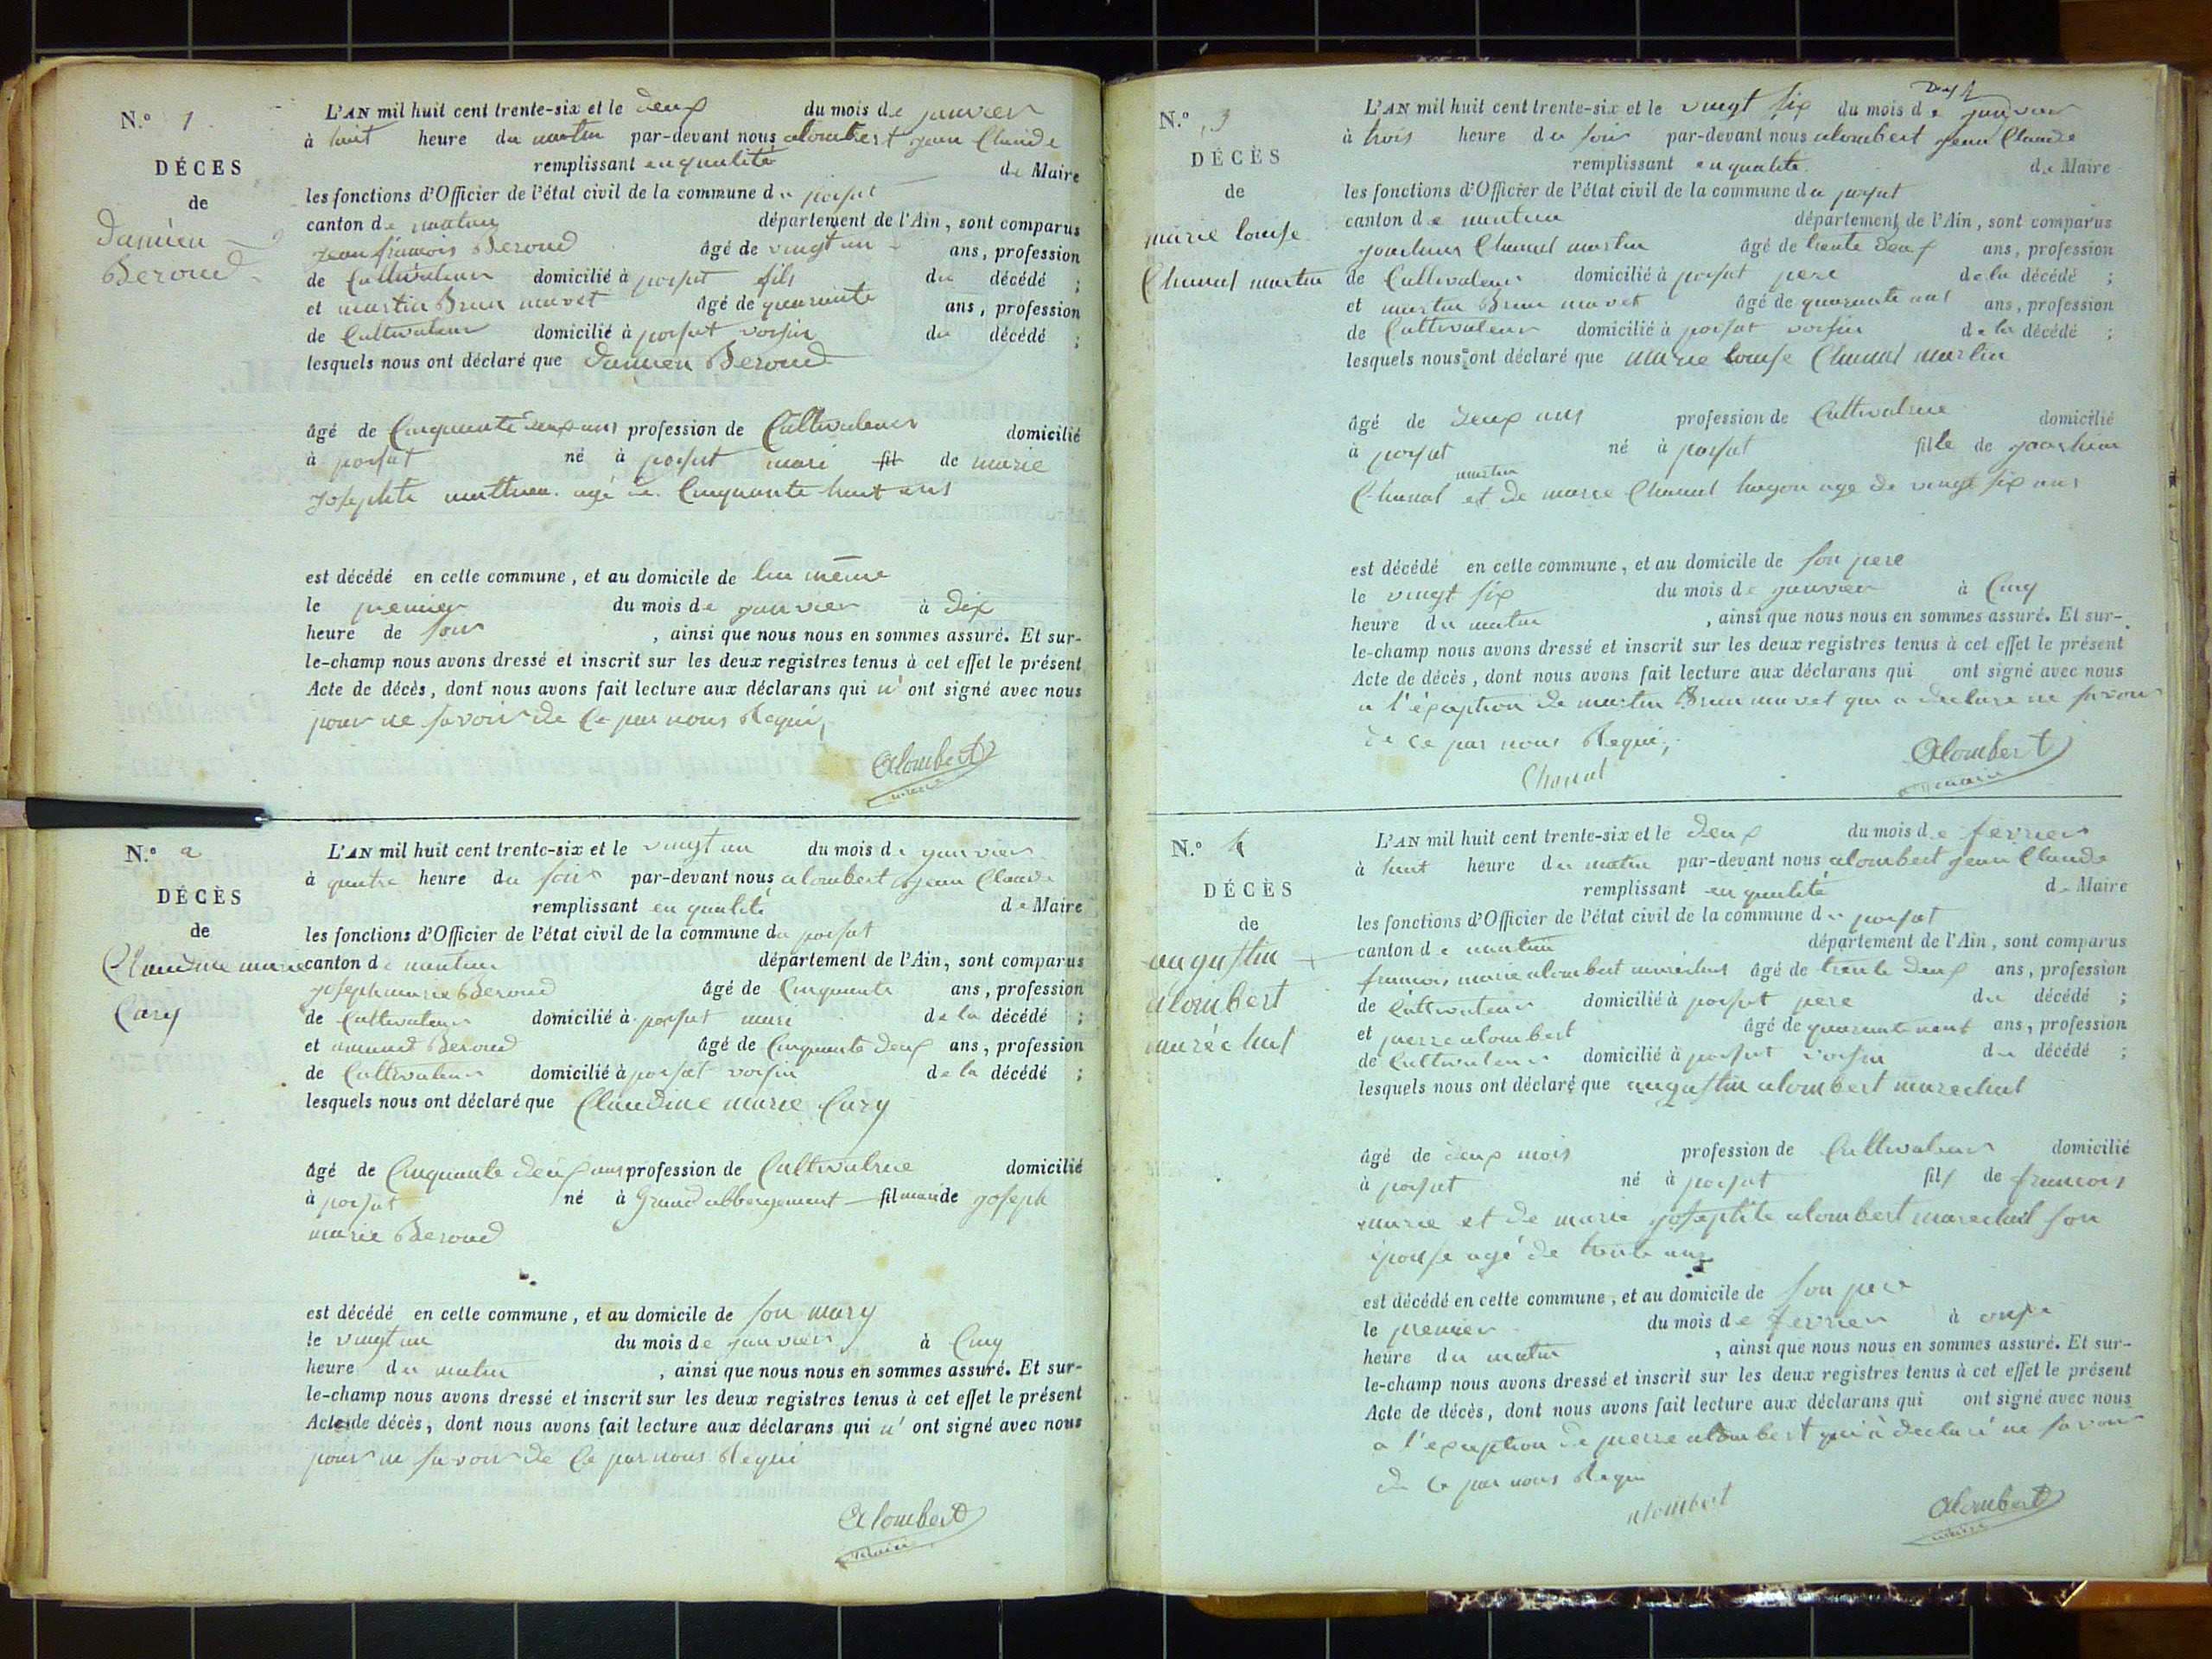 N.º 1
DÉCES
de
Damien
Beroud
L'AN mil huit cent trente-six et le deux du mois de janvier
à huit heure du matin par-devant nous alombert jean Claude
remplissant en qualité de Maire
les fonctions d'Officier de l'état civil de la commune du poisat
canton de nantua département de l'Ain, sont comparus
jean francois Beroud âgé de vingt un ans, profession
de Cultivateur domicilié à poisat fils du décédé ;
et martin Brun mavet âgé de quarante ans, profession
de Cultivateur domicilié à poisat voisin du décédé ;
lesquels nous ont déclaré que Damien Beroud
âgé de Cinquante deux ans profession de Cultivateur domicilié
à poisat né à poisat mari fil de marie
Josephte mathieu agé de Cinquante huit ans
est décédé en cette commune, et au domicile de lui même
le premier du mois de janvier à dix
heure de soir , ainsi que nous nous en sommes assuré. Et sur-
le-champ nous avons dressé et inscrit sur les deux registres tenus à cet effet le présent
Acte de décès, dont nous avons fait lecture aux déclarans qui n' ont signé avec nous
pour ne savoir de Ce par nous Requi,
Alombert
maire
N.º 2
DÉCÈS
de
Claudine marie
Cary
L'AN mil huit cent trente-six et le vingt un du mois de janvier
à quatre heure du soir par-devant nous alombert jean Claude
remplissant en qualité de Maire
les fonctions d'Officier de l'état civil de la commune du poisat
canton de nantua département de l'Ain, sont comparus
joseph marie Beroud âgé de Cinquante ans, profession
de Cultivateur domicilié à poisat mari de la décédé ;
et Beroud âgé de Cinquante deux ans, profession
de Cultivateur domicilié à poisat voisin de la décédé ;
lesquels nous ont déclaré que Claudine marie Cary
âgé de Cinquante deux ans profession de Cultivatrice domicilié
à poisat né à Grand abbergement fil de joseph
marie Beroud
est décédé en cette commune, et au domicile de son mary
le vingt un du mois de janvier à Cinq
heure du matin , ainsi que nous nous en sommes assuré. Et sur-
le-champ nous avons dressé et inscrit sur les deux registres tenus à cet effet le présent
Acte de décès, dont nous avons fait lecture aux déclarans qui n' ont signé avec nous
pour ne savoir de Ce par nous Requi
Alombert
maire
N.º 3
DÉCÈS
de
marie louise
Chanal martin
L'AN mil huit cent trente-six et le vingt six du mois de janvier
à trois heure du soir par-devant nous alombert jean Claude
remplissant en qualite de Maire
les fonctions d'Officier de l'état civil de la commune du poisat
canton de nantua département de l'Ain, sont comparus
joachim Chanal martin âgé de trente deux ans, profession
de Cultivateur domicilié à poisat pere de la décédé ;
et martin Brun mavet âgé de quarante ans ans, profession
de Cultivateur domicilié à poisat voisin de la décédé ;
lesquels nous ont déclaré que marie louise Chanal martin
âgé de deux ans profession de Cultivatrice domicilié
à poisat né à poisat fille de joachim
Chanal martin et de marie Chanal age de vingt six ans
est décédé en cette commune, et au domicile de son pere
le vingt six du mois de janvier à Cinq
heure du matin , ainsi que nous nous en sommes assuré. Et sur-
le-champ nous avons dressé et inscrit sur les deux registres tenus à cet effet le présent
Acte de décès, dont nous avons fait lecture aux déclarans qui ont signé avec nous
a l'éxception de martin Brun mavet qui a declare ne savoir
de ce par nous Requi,
Chanal
Alombert
maire
N.º 4
DÉCÈS
de
augustin
alombert
maréchal
L'AN mil huit cent trente-six et le deux du mois de fevrier
à huit heure du matin par-devant nous alombert jean Claude
remplissant en qualité de Maire
les fonctions d'Officier de l'état civil de la commune du poisat
canton de nantua département de l'Ain, sont comparus
francois marie alombert marechal âgé de trente deux ans, profession
de Cultivateur domicilié à poisat pere du décédé ;
et pierre alombert âgé de quarante ans, profession
de Cultivateur domicilié à poisat voisin du décédé ;
lesquels nous ont déclaré que augustin alombert marechal
âgé de deux mois profession de Cultivateur domicilié
à poisat né à poisat fils de francois
marie et de marie josephte alombert marechal son
épouse agé de trente ans
est décédé en cette commune, et au domicile de son pere
le premier du mois de fevrier à onze
heure du matin , ainsi que nous nous en sommes assuré. Et sur-
le-champ nous avons dressé et inscrit sur les deux registres tenus à cet effet le présent
Acte de décès, dont nous avons fait lecture aux déclarans qui ont signé avec nous
a l'exception de pierre alombert qui à declaré ne savoir
de Ce par nous Requi
alombert
Alombert
maire